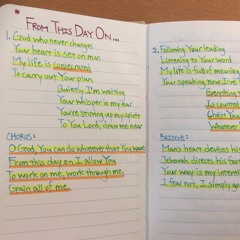 FROM THIS DAY ON...
1. God who never changes
Your heart is set on man
My life is
To carry out Your plan
Quietly I'm waiting
Your whisper in my ear
You're stirring up my spirit
To You Lord, draw me near
CHORUS:
O God, You can do whatever that You want
From this day on I allow You
To work on me, work through me,
Gain all of me.
2. Following Your leading
Listening to Your word
My life is full of meaning
Your speaking now I've
Everything
Is
Christ
Whatever
BRIDGE:
Man's heart devises his
Jehovah directs his
Your way is my
I fear not, I simply go